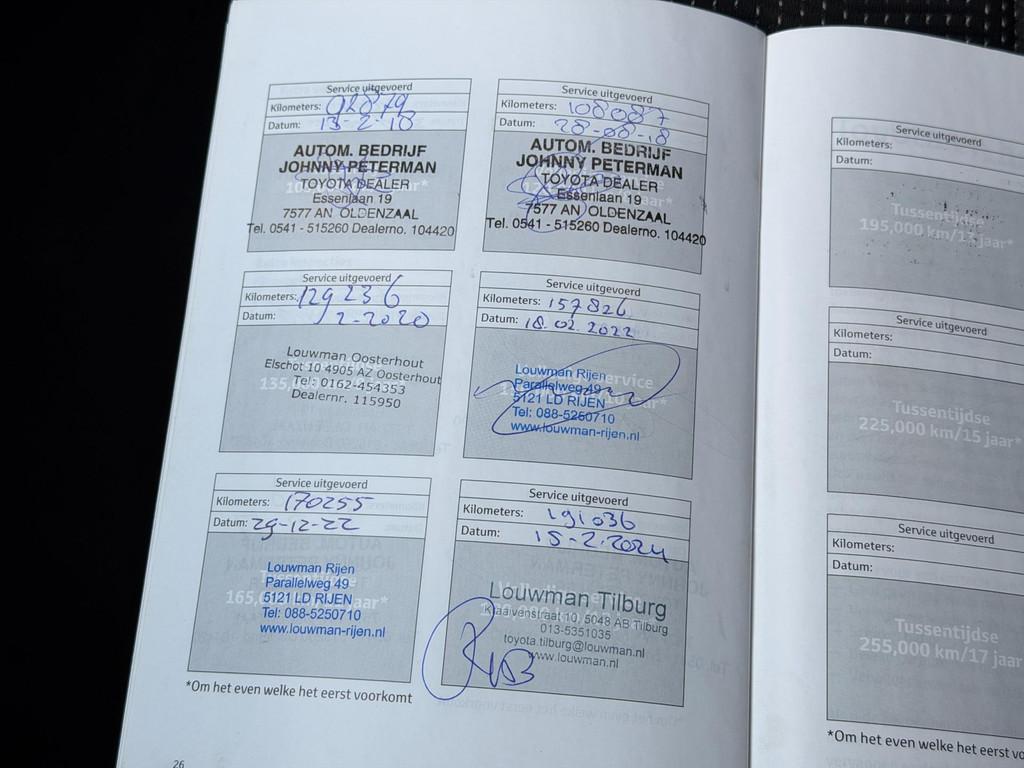 Service uitgevoerd
Kilometers:
Datum: 13-2-18
AUTOM. BEDRIJF
JOHNNY PETERMAN
TOYOTA DEALER
Essenlaan 19
7577 AN OLDENZAAL
Tel. 0541 - 515260 Dealerno. 104420
Service uitgevoerd
Kilometers: 108087
Datum: 28-08-18
AUTOM. BEDRIJF
JOHNNY PETERMAN
TOYOTA DEALER
Essenlaan 19
7577 AN OLDENZAAL
Tel. 0541 - 515260 Dealerno. 104420
Service uitgevoerd
Kilometers: 129236
Datum: 2-2020
Louwman Oosterhout
Elschot 10 4905 AZ Oosterhout
Tel: 0162-454353
Dealernr. 115950
Service uitgevoerd
Kilometers: 157826
Datum: 18.02.2022
Louwman Rijen
Parallelweg 49
5121 LD RIJEN
Tel: 088-5250710
www.louwman-rijen.nl
Service uitgevoerd
Kilometers: 170255
Datum: 29-12-22
Louwman Rijen
Parallelweg 49
5121 LD RIJEN
Tel: 088-5250710
www.louwman-rijen.nl
Service uitgevoerd
Kilometers: 191036
Datum: 15-2-2024
Louwman Tilburg
Kraaivenstraat 10, 5048 AB Tilburg
013-5351035
toyota.tilburg@louwman.nl
www.louwman.nl
*Om het even welke het eerst voorkomt
26
Service uitgevoerd
Kilometers:
Datum:
Tussentijdse
195,000 km/13 jaar*
Service uitgevoerd
Kilometers:
Datum:
Tussentijdse
225,000 km/15 jaar*
Service uitgevoerd
Kilometers:
Datum:
Tussentijdse
255,000 km/17 jaar
*Om het even welke het eerst vo